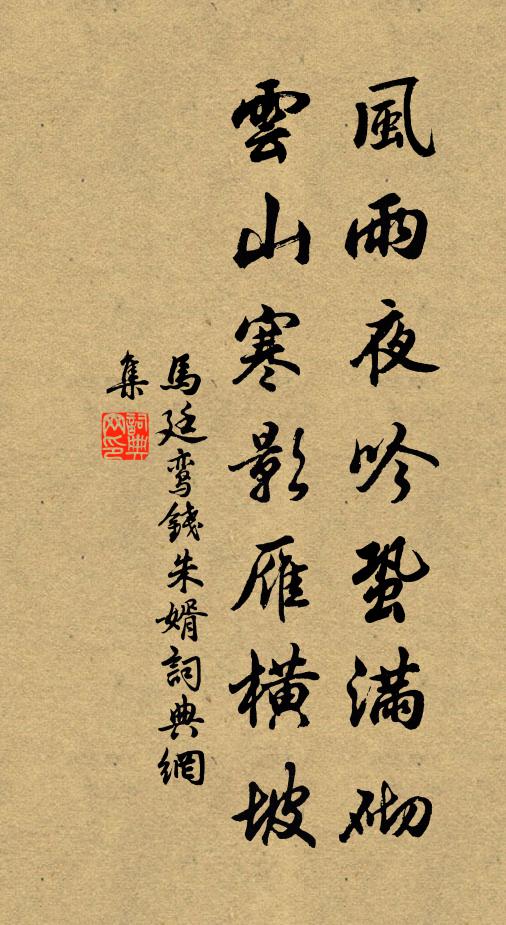 風雨夜吟蛩滿砌
雲山寒影雁橫坡
馬廷鸞錢朱婿詞典網
集
詞典
網印